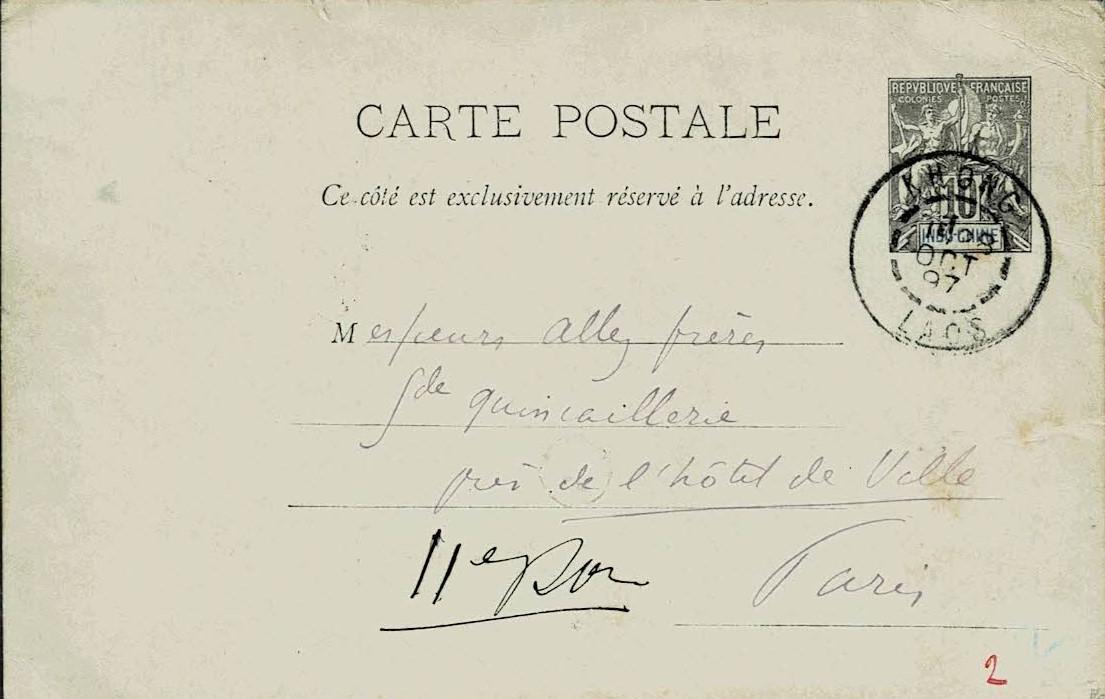 REPVBLIQVE FRANÇAISE
COLONIES POSTES
CARTE POSTALE
10
INDO-CHINE
KHONG
8
OCT
97
LAOS
Ce côté est exclusivement réservé à l'adresse.
Messieurs Allez frères
Gde quincaillerie
près de l'hôtel de Ville
11e
Paris
2